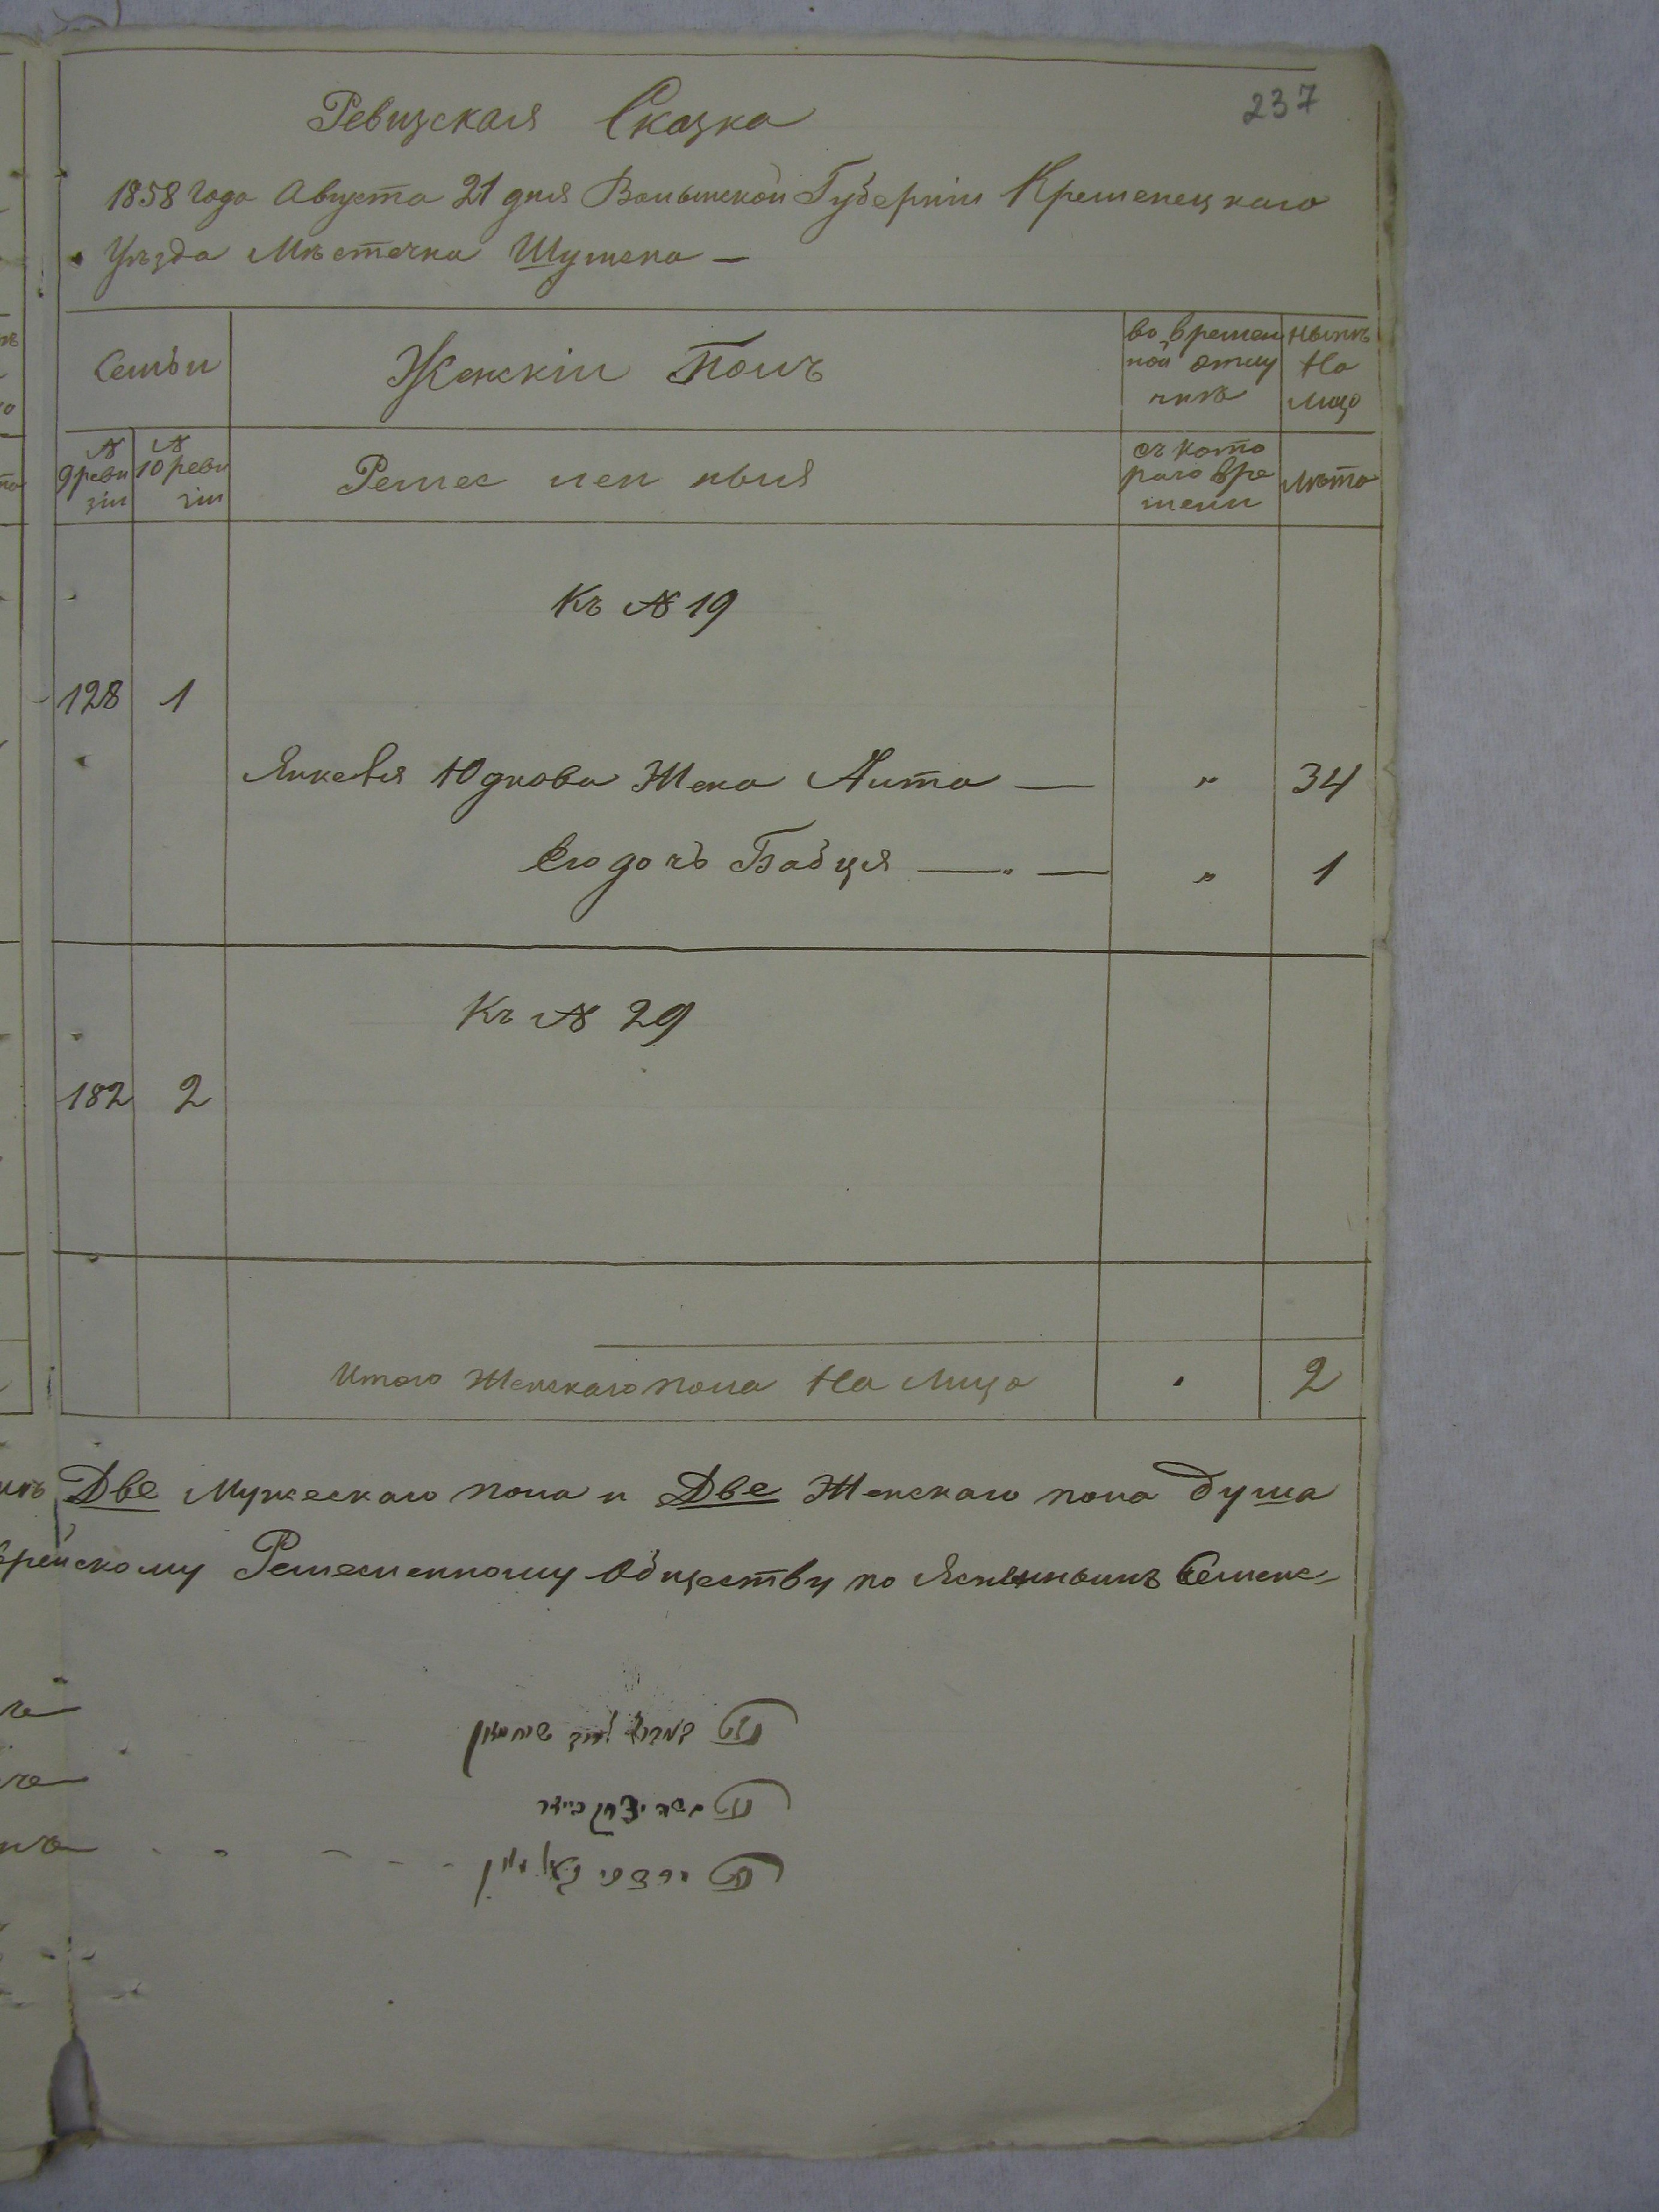 237
Ревизская Сказка
1858 года Августа 21 дня Волынской Губерніи Кременецкаго
Уѣзда Мѣстечка Шумска —
Семьи
Женскій Полъ
во времен
ной отлу
чкѣ
нынѣ
На
лицо
№
9 реви
зіи
№
10 реви
зіи
Ремеслен ныя
съ кото
раго вре
мени
Лѣта
Къ № 19
128 1
Янкеля Юдкова Жена Лита — " 34
Его дочь Бабця — — " 1
Къ № 29
182 2
Итого Женскаго пола На лицо 2
Две Мужескаго пола и Две Женскаго пола душа
врейскому Ремесленному Обществу по